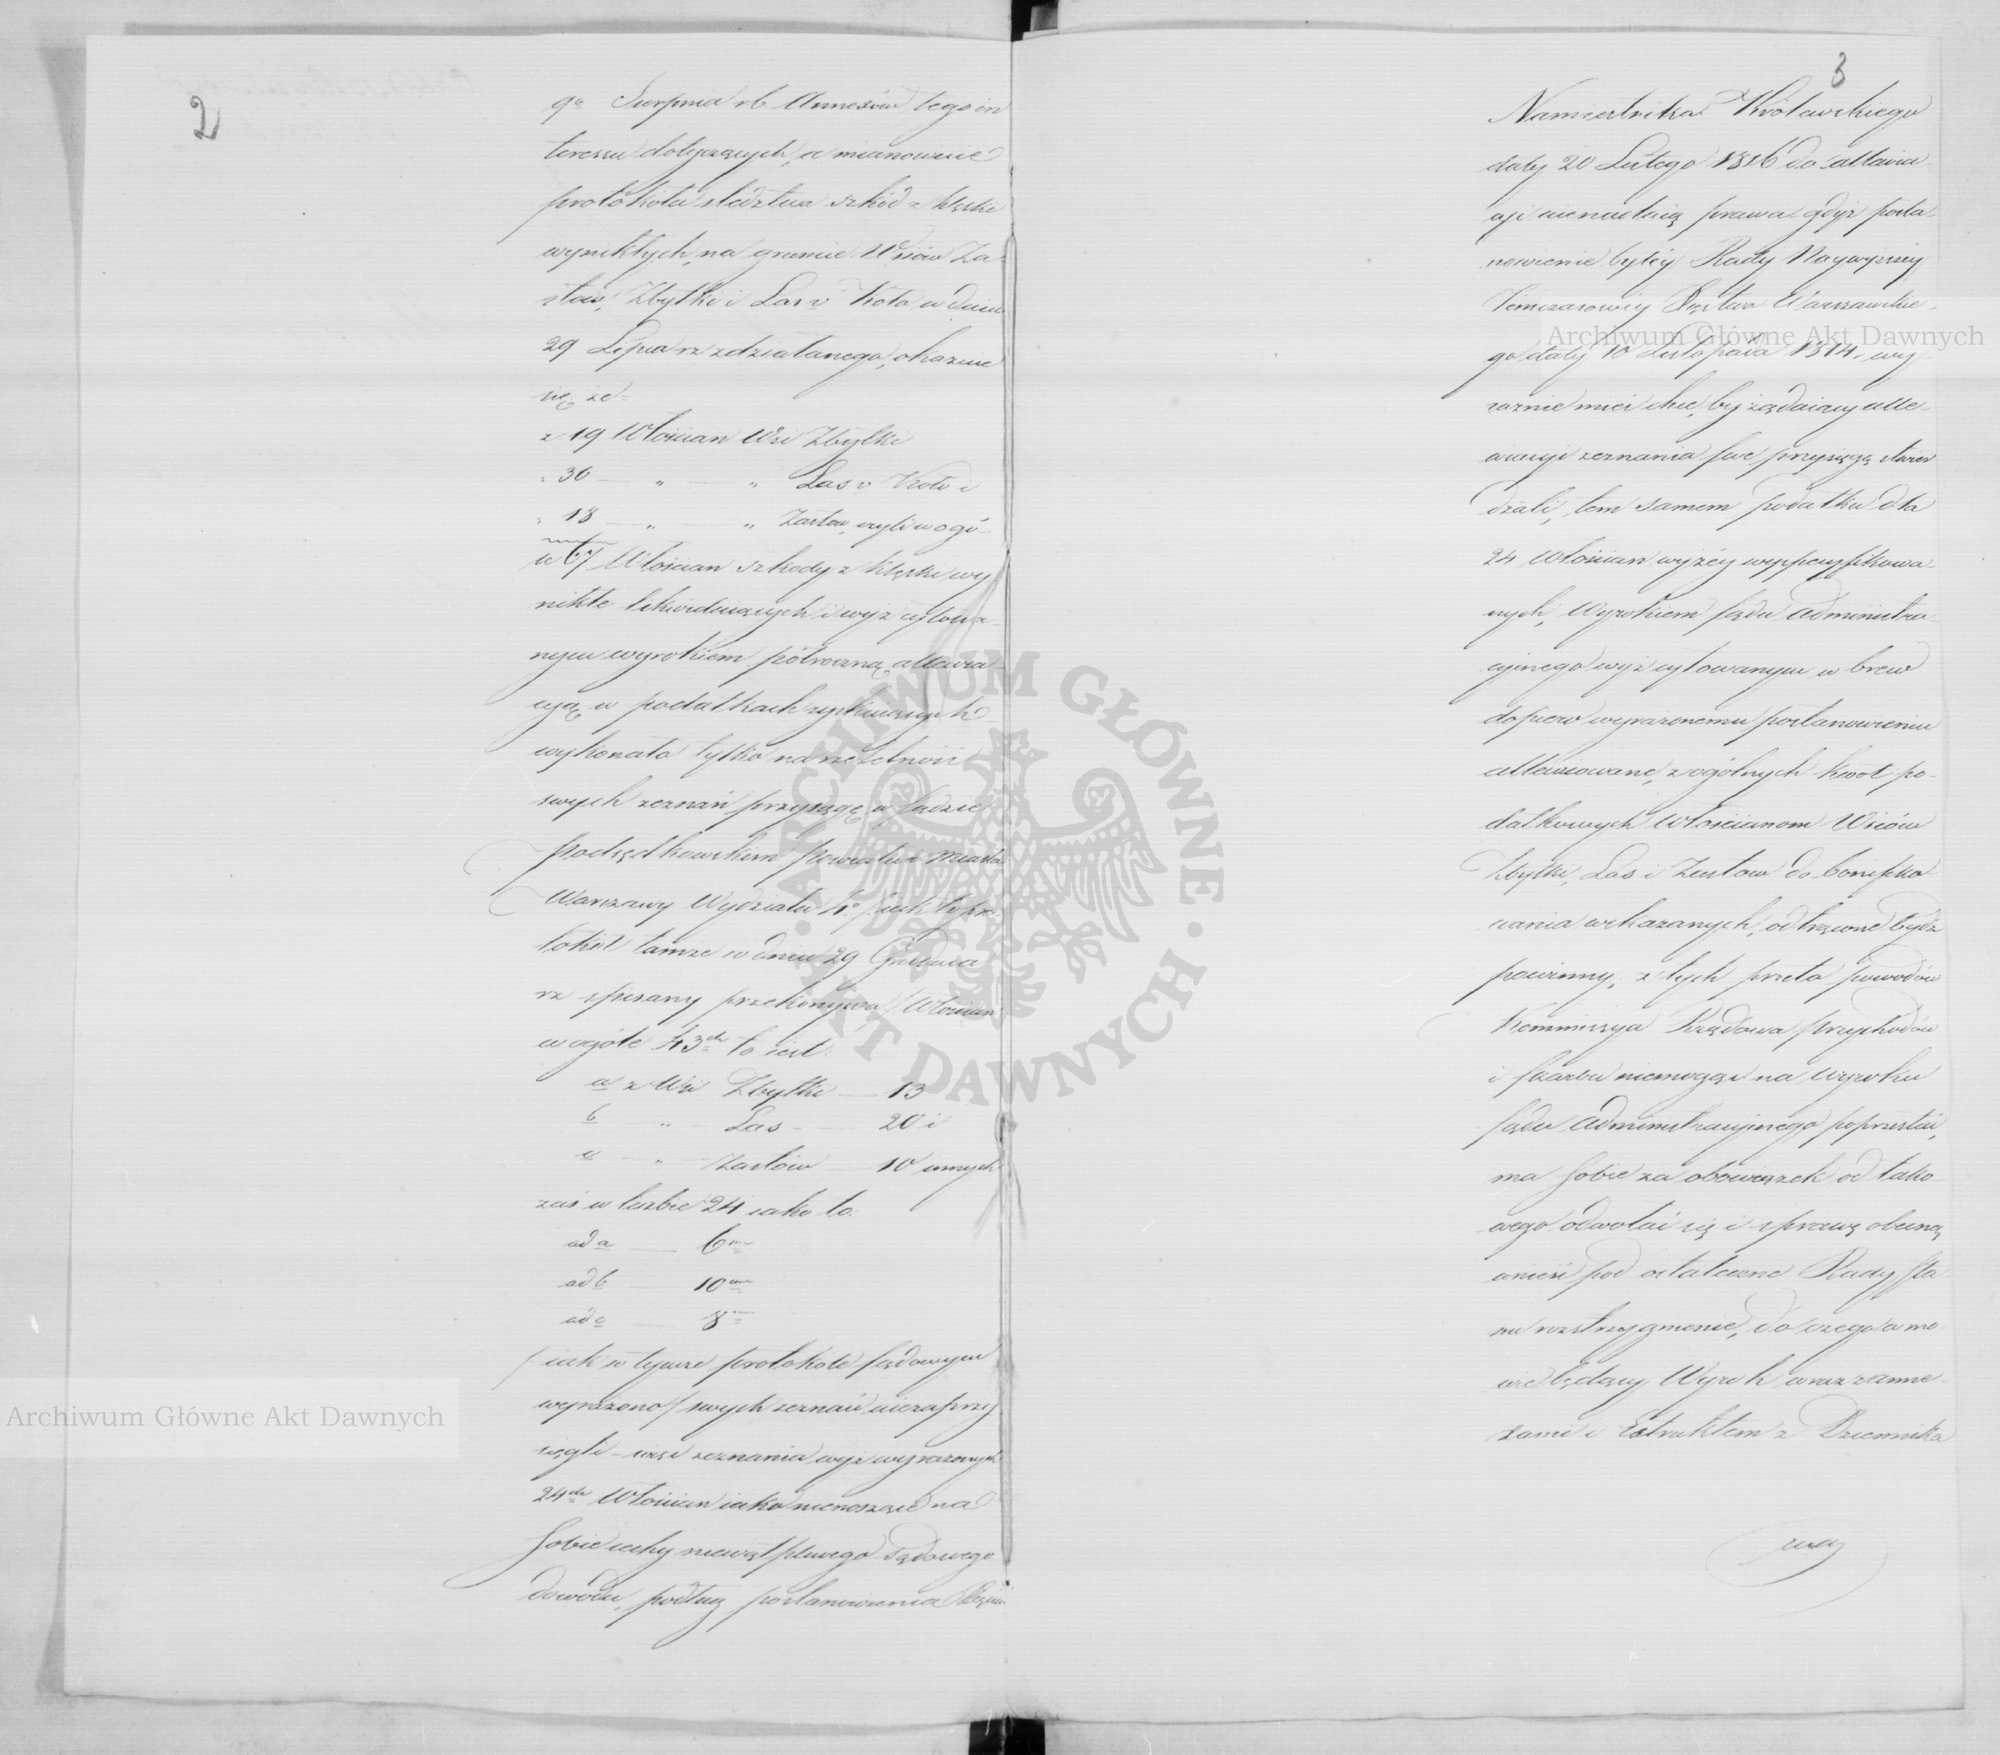 2
9go Sierpnia rb Annexów tego in
teressu dotyczących, a mianowicie
protokołu śledztwa szkód z klęski
wynikłych, na gruncie Wsiów Za-
stów, Zbytki i Las v Koło w dniu
29 Lipca rz zdziałanego, okazuie
się że=
z 19 Włościan Wsi Zbytki
" 30 — " — " Las v Koło i
" 18 — " " Zastow, czyli w ogó-
le 67 Włościan szkody z klęski wy
nikłe likwiduiących i wyż cytowa-
nym wyrokiem półroczną allewia-
cyą w podatkach zyskuiących
wykonało tylko na rzetelność
swych zeznań przysięgę w Sądzie
Podsędkowskim Powiatu Miasta
Warszawy Wydziału /iak to pro
tokół tamże w dniu 29 Grudnia
rz spisany przekonywa/ Włościan
w ogóle 43ch to iest:
a z Wsi Zbytki — 13
b — " — Las — 20 i
c — " — Zastów — 10 innych
zaś w liczbie 24 iako to:
ad a — 6
ad b — 10
ad c — 8
/iak w tymże protokole sądowym
wyrażono/ swych zeznań niezaprzy
sięgli — więc zeznania wyż wyrażonych
24ch Włościan iako nienoszące na
sobie cechy niewątpliwego Sądowego
dowodu, podług postanowienia Xięcia
3
Namiestnika Królewskiego
daty 20 Lutego 1816 do allewia-
cyi nienadaią prawa gdyż posta-
nowienie byłéy Rady Naywyższéy
Tymczasowéy Xięstwa Warszawskie-
go daty 10 Listopada 1814. wy-
raźnie mieć chce, by żądaiący alle-
wiacyi zeznania swe przysięgą stwier
dzali, tem samem podatku dla
24 Włościan wyżéy wyspecyfikowa-
nych, Wyrokiem Sądu Administra-
cyinego wyż cytowanym w brew
dopiero wyrażonemu postanowieniu
allewiowane, z ogólnych kwot po-
datkowych Włościanom Wsiów
Zbytki, Las i Zastow do bonifiko
wania wskazanych, odtrącone bydź
powinny; z tych przeto powodów
Kommissya Rządowa Przychodów
i Skarbu niemogąc na Wyroku
Sądu Administracyinego poprzestać,
ma sobie za obowiązek od tako-
wego odwołać się i sprawę obecną
wnieść pod ostateczne Rady Sta-
nu rozstrzygnienie, do czego w mo-
wie będący Wyrok wraz z anne-
xami i Extraktem z Dziennika
Archiwum Główne Akt Dawnych
Archiwum Główne Akt Dawnych
ARCHIWUM GŁÓWNE AKT DAWNYCH